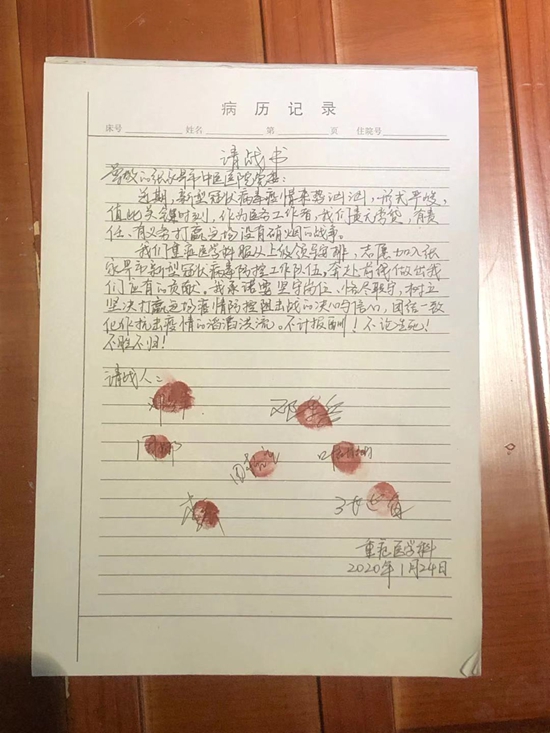 病历记录
床号 姓名 第 页 住院号
请战书
尊敬的张家界市中医医院党委:
近期,新型冠状病毒疫情来势汹汹,形式严峻,
值此关键时刻,作为医务工作者,我们责无旁贷,有责
任、有义务打赢这场没有硝烟的战争。
我们重症医学科服从上级领导安排,志愿加入张
家界市新型冠状病毒防控工作队伍,奔赴前线做出我
们应有的贡献。我承诺坚守岗位、恪尽职守,树立
坚决打赢这场疫情防控阻击战的决心与信心,团结一致
化作抗击疫情的滔滔洪流。不计报酬!不论生死!
不胜不归!
请战人:
重症医学科
2020年1月24日